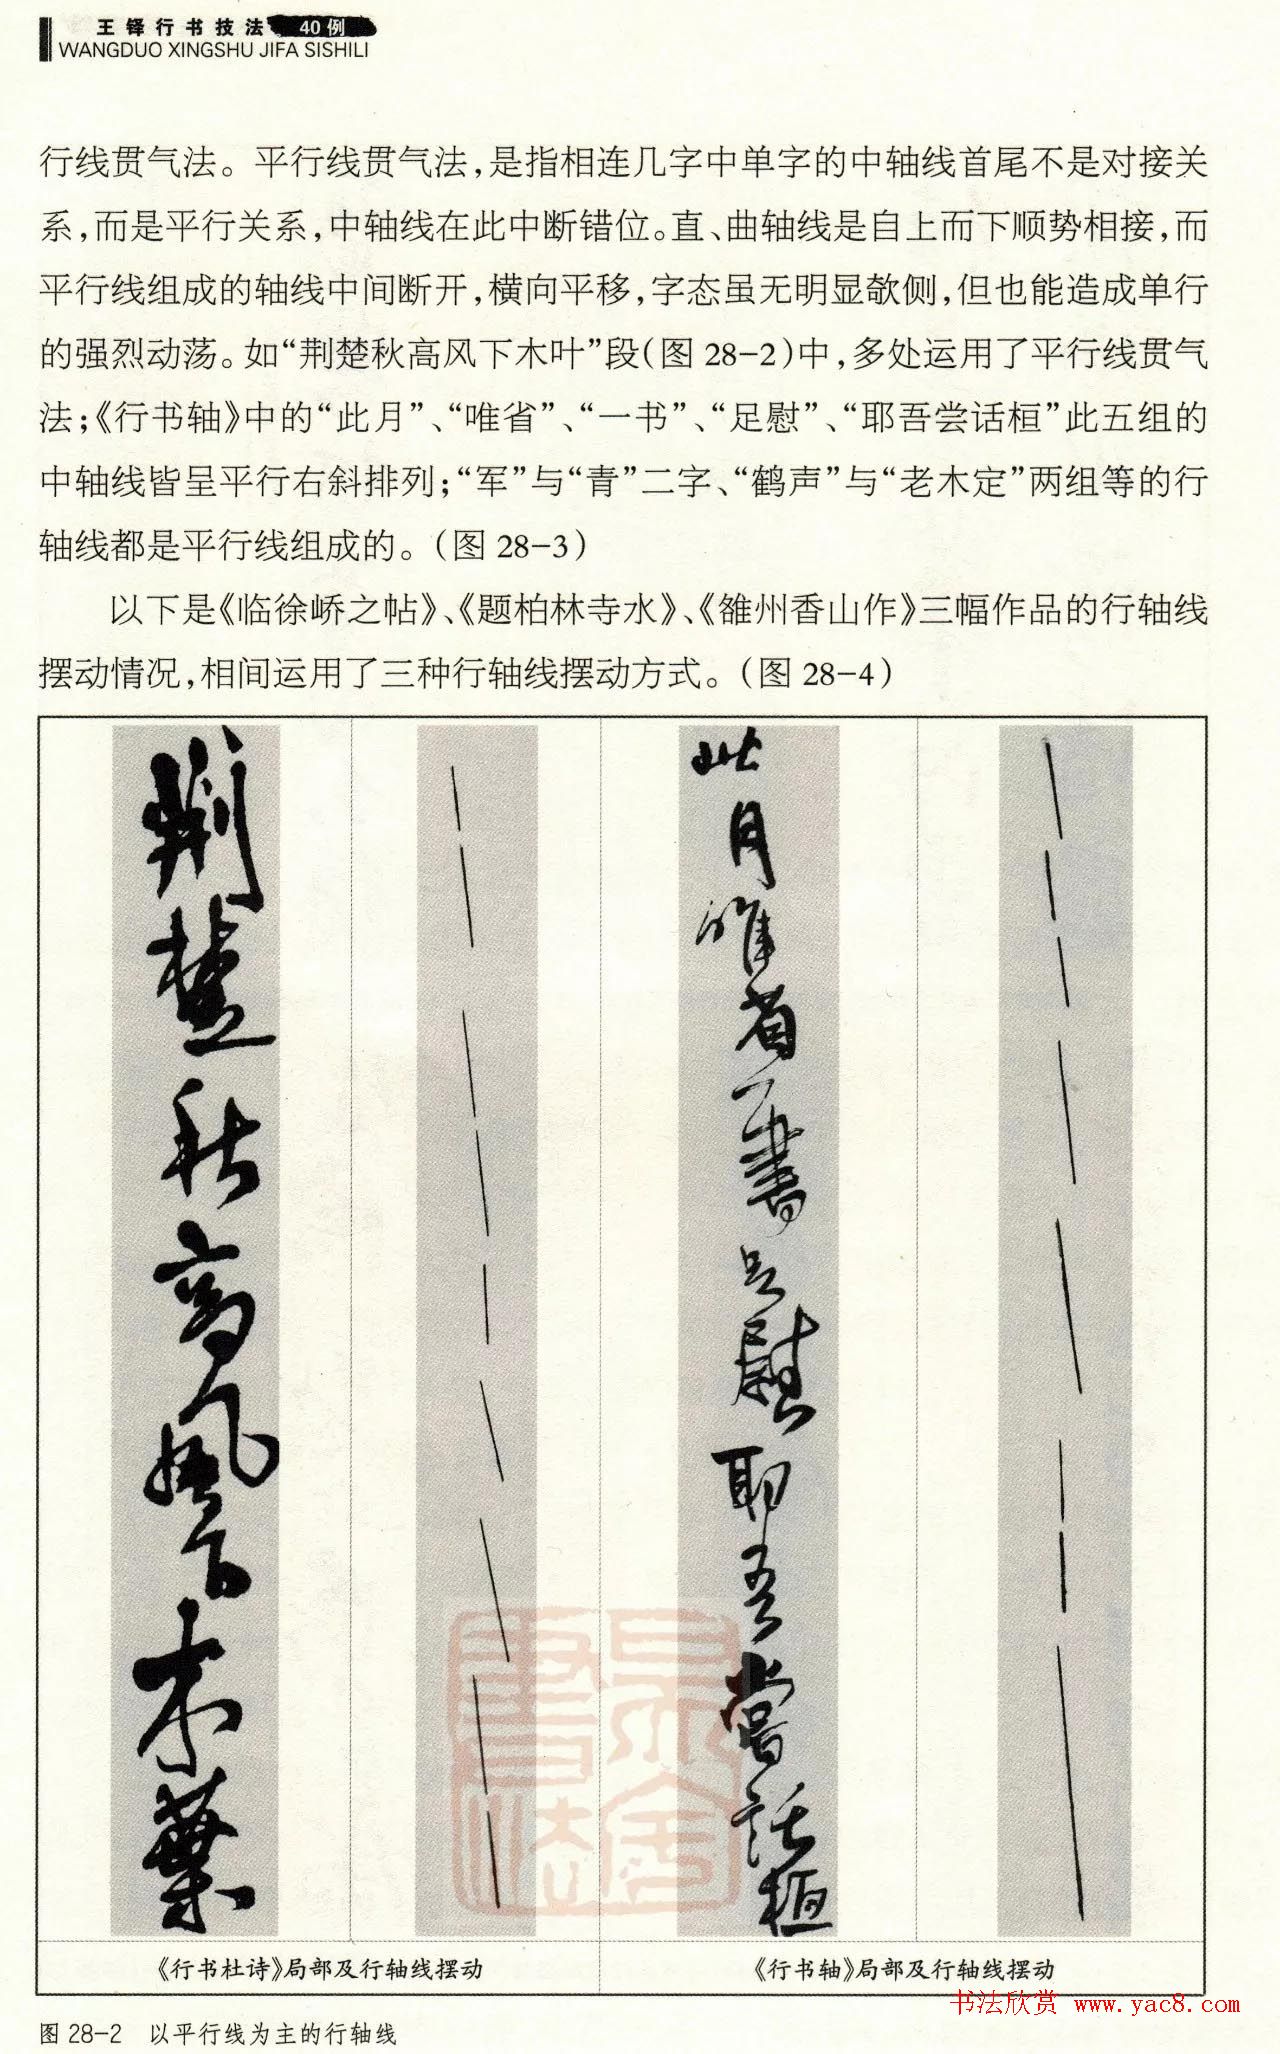 王铎行书技法 40例
WANGDUO XINGSHU JIFA SISHILI
行线贯气法。平行线贯气法，是指相连几字中单字的中轴线首尾不是对接关
系，而是平行关系，中轴线在此中断错位。直、曲轴线是自上而下顺势相接，而
平行线组成的轴线中间断开，横向平移，字态虽无明显欹侧，但也能造成单行
的强烈动荡。如“荆楚秋高风下木叶”段（图 28-2）中，多处运用了平行线贯气
法；《行书轴》中的“此月”、“唯省”、“一书”、“足慰”、“耶吾尝话桓”此五组的
中轴线皆呈平行右斜排列；“军”与“青”二字、“鹤声”与“老木定”两组等的行
轴线都是平行线组成的。（图 28-3）
以下是《临徐峤之帖》、《题柏林寺水》、《雒州香山作》三幅作品的行轴线
摆动情况，相间运用了三种行轴线摆动方式。（图 28-4）
荆楚秋高风下木葉
此月唯省一書足慰耶吾嘗話桓
《行书杜诗》局部及行轴线摆动
《行书轴》局部及行轴线摆动
书法欣赏 www.yac8.com
图 28-2 以平行线为主的行轴线